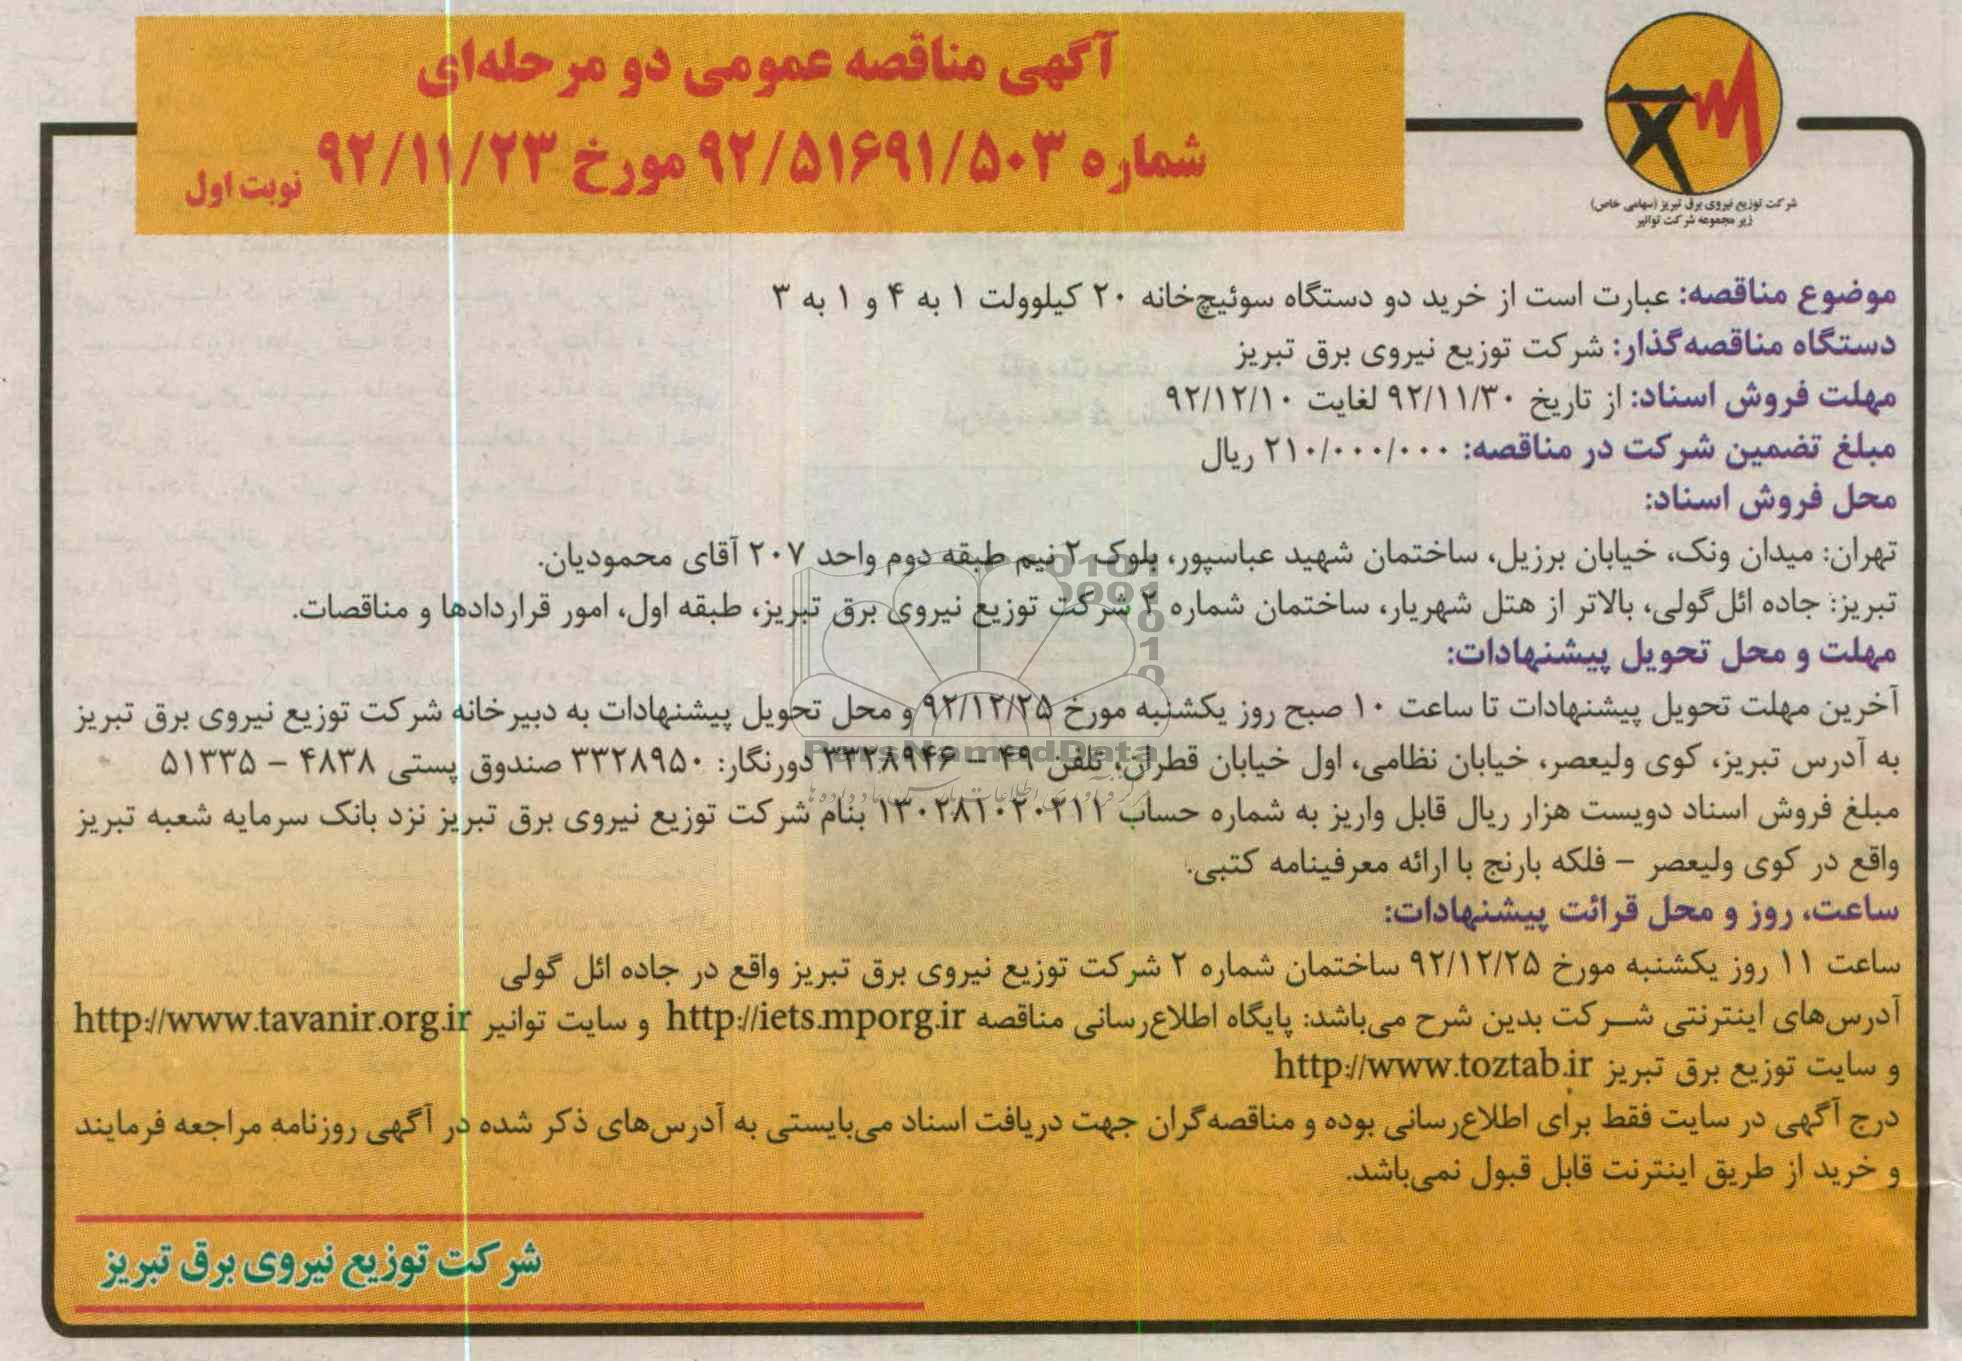 آگهی مناقصه عمومی دو مرحله‌ای
شماره ۹۲/۵۱۶۹۱/۵۰۳ مورخ ۹۲/۱۱/۲۳ نوبت اول
شرکت توزیع نیروی برق تبریز (سهامی خاص)
زیر مجموعه شرکت توانیر
موضوع مناقصه: عبارت است از خرید دو دستگاه سوئیچ‌خانه ۲۰ کیلوولت ۱ به ۴ و ۱ به ۳
دستگاه مناقصه‌گذار: شرکت توزیع نیروی برق تبریز
مهلت فروش اسناد: از تاریخ ۹۲/۱۱/۳۰ لغایت ۹۲/۱۲/۱۰
مبلغ تضمین شرکت در مناقصه: ۲۱۰/۰۰۰/۰۰۰ ریال
محل فروش اسناد:
تهران: میدان ونک، خیابان برزیل، ساختمان شهید عباسپور، بلوک ۲ نیم طبقه دوم واحد ۲۰۷ آقای محمودیان.
تبریز: جاده ائل‌گولی، بالاتر از هتل شهریار، ساختمان شماره ۲ شرکت توزیع نیروی برق تبریز، طبقه اول، امور قراردادها و مناقصات.
مهلت و محل تحویل پیشنهادات:
آخرین مهلت تحویل پیشنهادات تا ساعت ۱۰ صبح روز یکشنبه مورخ ۹۲/۱۲/۲۵ و محل تحویل پیشنهادات به دبیرخانه شرکت توزیع نیروی برق تبریز
به آدرس تبریز، کوی ولیعصر، خیابان نظامی، اول خیابان قطران، تلفن ۴۹ - ۳۳۲۸۹۴۶ دورنگار: ۳۳۲۸۹۵۰ صندوق پستی ۴۸۳۸ - ۵۱۳۳۵
مبلغ فروش اسناد دویست هزار ریال قابل واریز به شماره حساب ۱۳۰۲۸۱۰۲۰۲۱۱ بنام شرکت توزیع نیروی برق تبریز نزد بانک سرمایه شعبه تبریز
واقع در کوی ولیعصر - فلکه بارنج با ارائه معرفینامه کتبی.
ساعت، روز و محل قرائت پیشنهادات:
ساعت ۱۱ روز یکشنبه مورخ ۹۲/۱۲/۲۵ ساختمان شماره ۲ شرکت توزیع نیروی برق تبریز واقع در جاده ائل گولی
آدرس‌های اینترنتی شرکت بدین شرح می‌باشد: پایگاه اطلاع‌رسانی مناقصه http://iets.mporg.ir و سایت توانیر http://www.tavanir.org.ir
و سایت توزیع برق تبریز http://www.toztab.ir
درج آگهی در سایت فقط برای اطلاع‌رسانی بوده و مناقصه‌گران جهت دریافت اسناد می‌بایستی به آدرس‌های ذکر شده در آگهی روزنامه مراجعه فرمایند
و خرید از طریق اینترنت قابل قبول نمی‌باشد.
شرکت توزیع نیروی برق تبریز
ParsNamadData